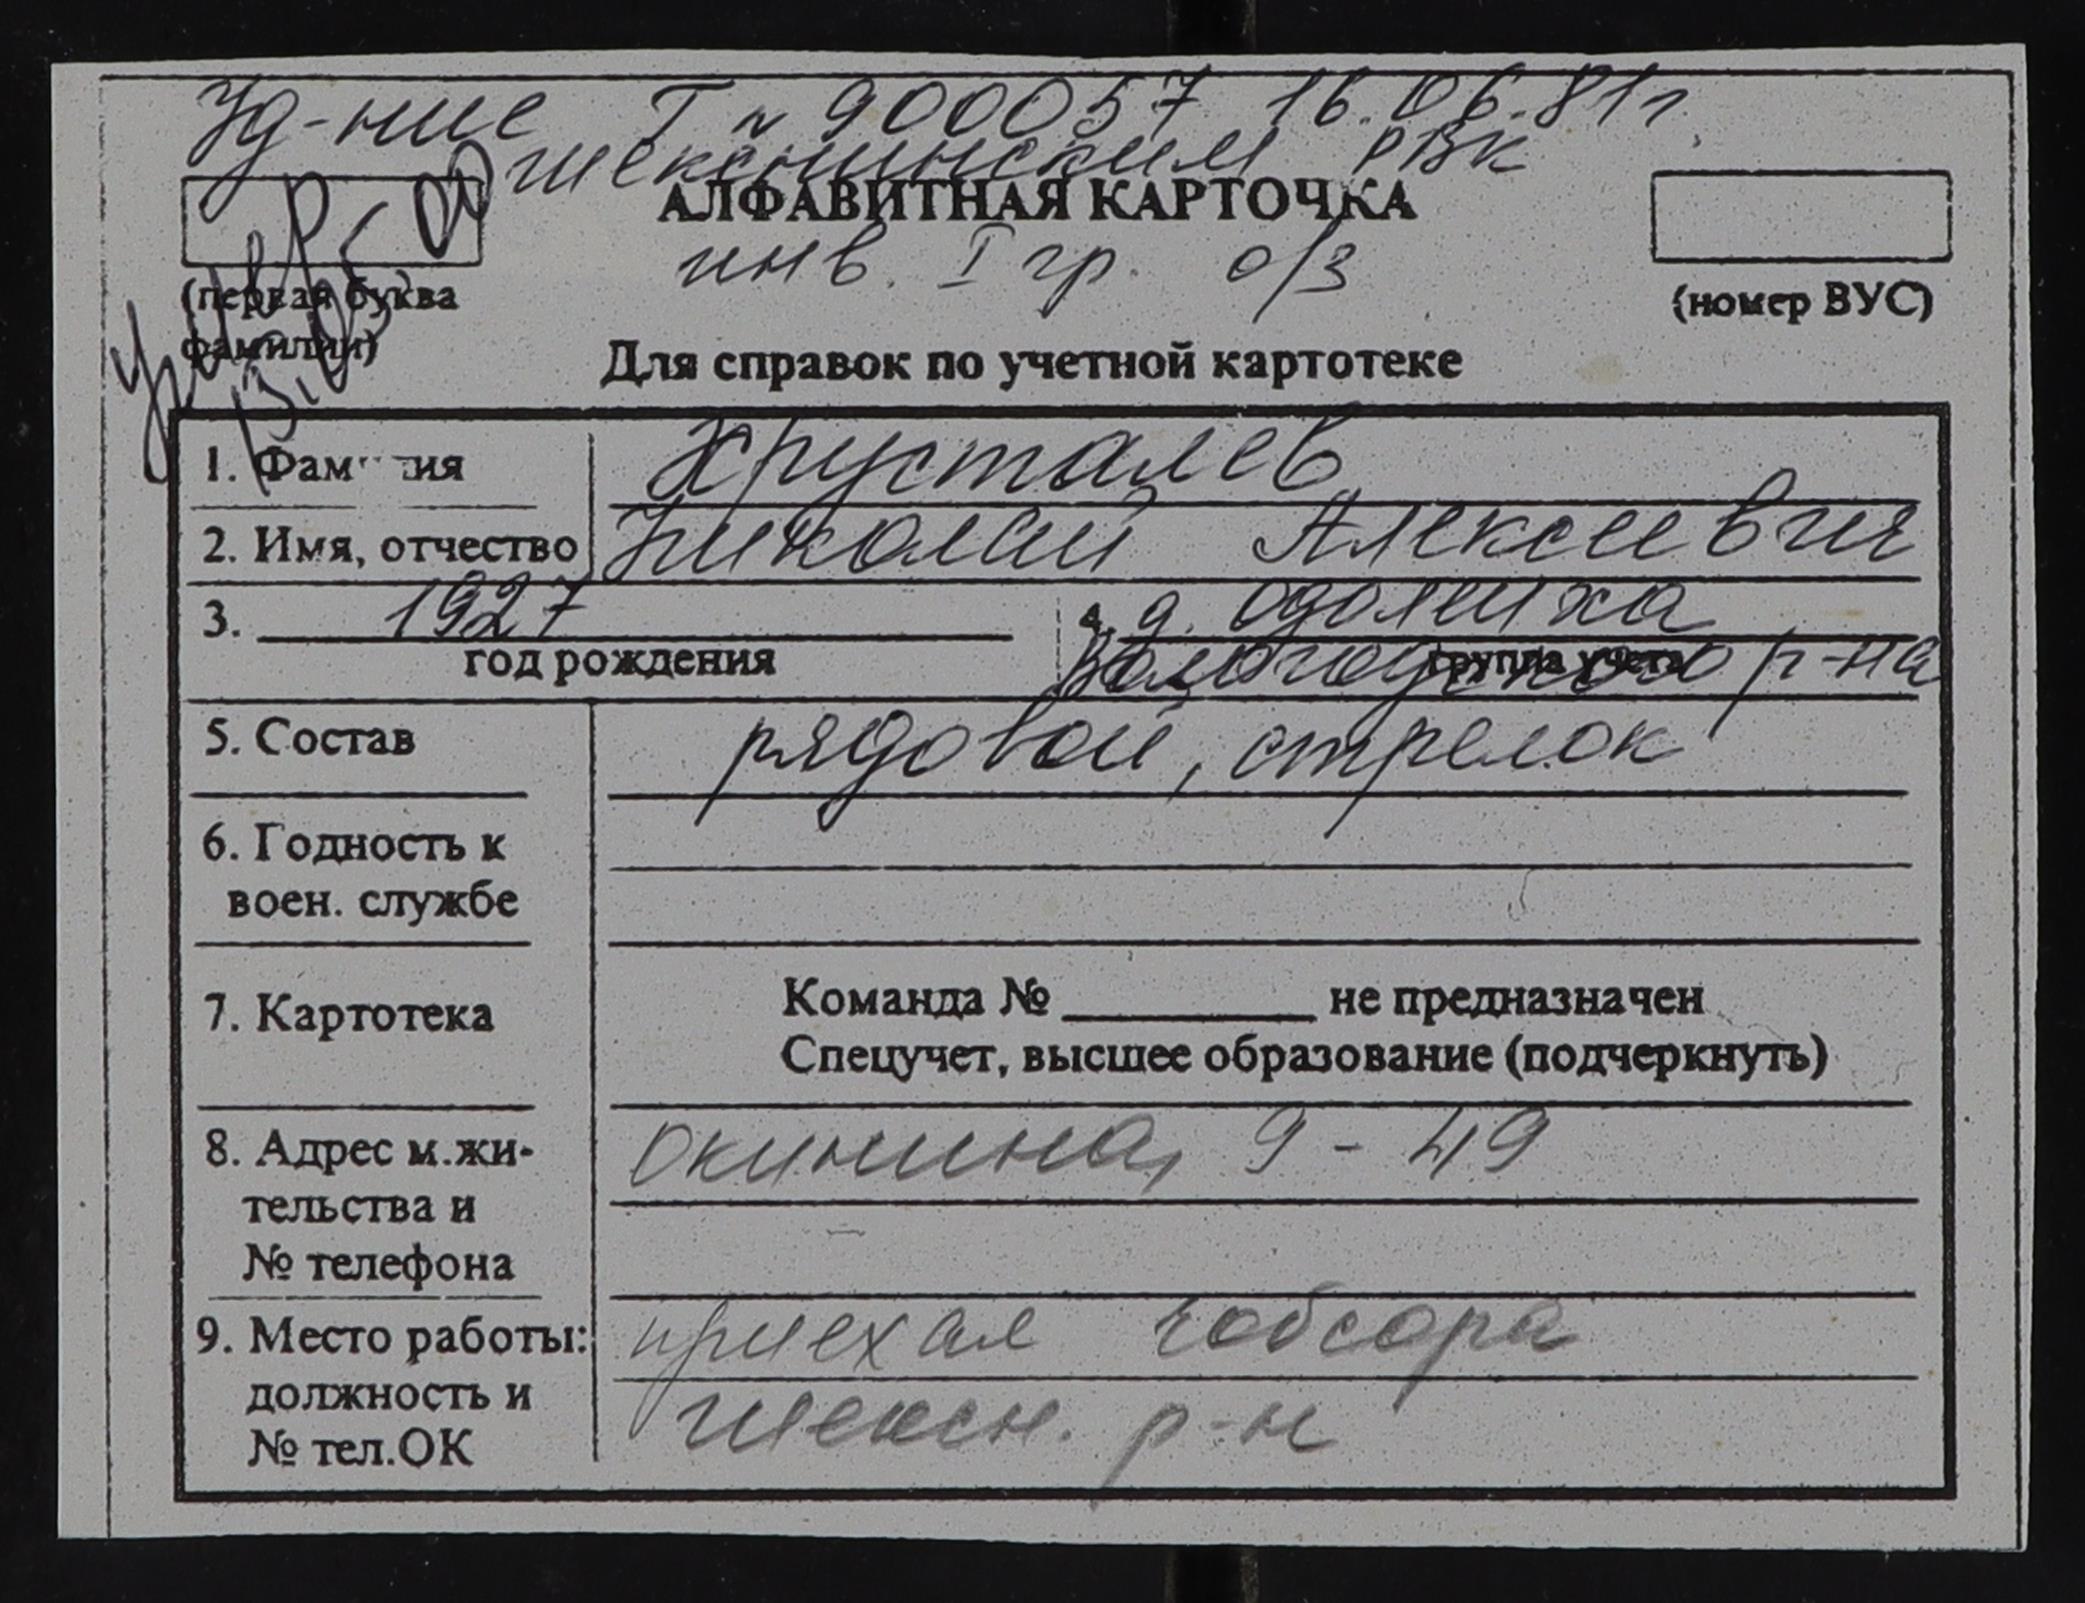 Уд-ние Г № 900057 16.06.81г.
Шекснинским РВК
АЛФАВИТНАЯ КАРТОЧКА
инв. I гр. о/з
(первая буква
фамилии)
(номер ВУС)
умер
Для справок по учетной картотеке
1. Фамилия Хрусталев
2. Имя, отчество Николай Алексеевич
3. 1927 4. д. Одомчиха
год рождения группа учета
Вологодского р-на
5. Состав рядовой, стрелок
6. Годность к
воен. службе
7. Картотека
Команда № не предназначен
Спецучет, высшее образование (подчеркнуть)
8. Адрес м.жи-
тельства и
№ телефона
Окинина, 9-49
9. Место работы:
должность и
№ тел.ОК
приехал Чебсара
Шексн. р-н